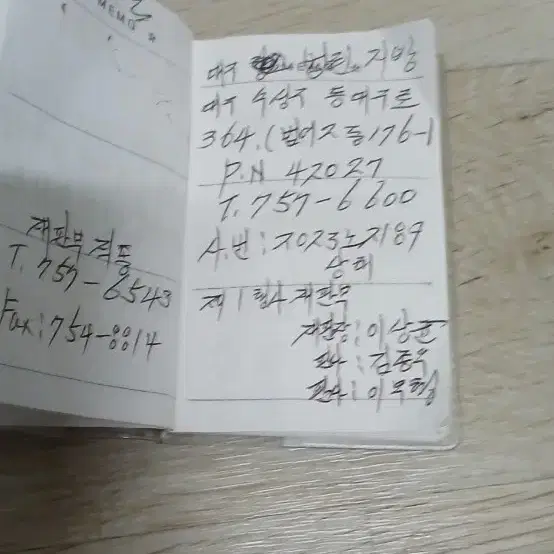 MEMO
재판부 직통
T. 757-6543
Fax: 754-8814
대구 지방
대구 수성구 동대구로
364. (범어2동 176-1
P.N 42027
T. 757-6600
사.번: 2023노3189
상해
제1형사 재판부
재판장: 이상균
판사: 김동우
판사: